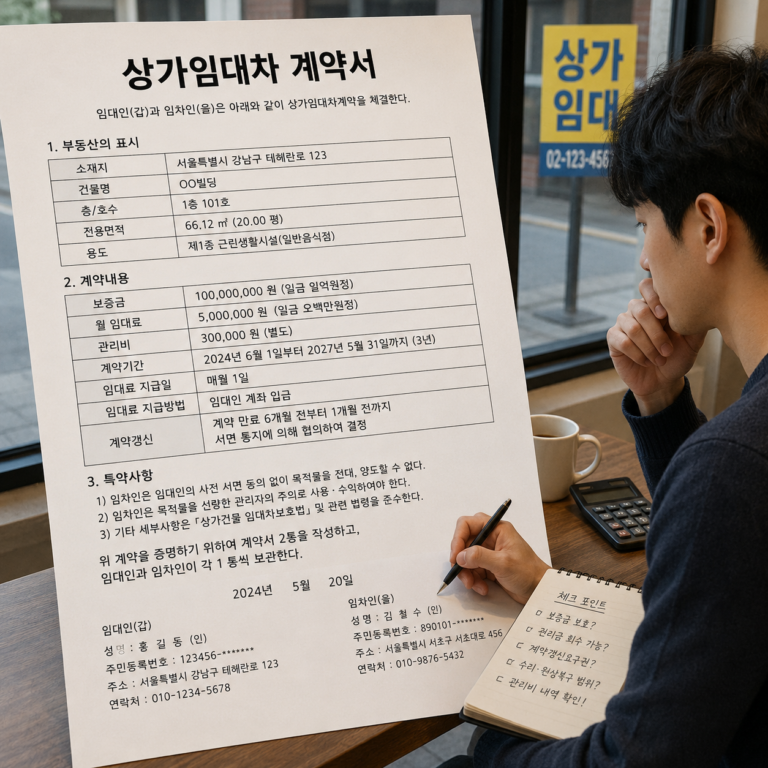 상가임대차 계약서
임대인(갑)과 임차인(을)은 아래와 같이 상가임대차계약을 체결한다.
1. 부동산의 표시
소재지 서울특별시 강남구 테헤란로 123
건물명 OO빌딩
층/호수 1층 101호
전용면적 66.12 ㎡ (20.00 평)
용도 제1종 근린생활시설(일반음식점)
2. 계약내용
보증금 100,000,000 원 (일금 일억원정)
월 임대료 5,000,000 원 (일금 오백만원정)
관리비 300,000 원 (별도)
계약기간 2024년 6월 1일부터 2027년 5월 31일까지 (3년)
임대료 지급일 매월 1일
임대료 지급방법 임대인 계좌 입금
계약갱신 계약 만료 6개월 전부터 1개월 전까지
서면 통지에 의해 협의하여 결정
3. 특약사항
1) 임차인은 임대인의 사전 서면 동의 없이 목적물을 전대, 양도할 수 없다.
2) 임차인은 목적물을 선량한 관리자의 주의로 사용·수익하여야 한다.
3) 기타 세부사항은 「상가건물 임대차보호법」 및 관련 법령을 준수한다.
위 계약을 증명하기 위하여 계약서 2통을 작성하고,
임대인과 임차인이 각 1 통씩 보관한다.
2024년 5월 20일
임대인(갑)
성명 : 홍 길 동 (인)
주민등록번호 : 123456-*******
주소 : 서울특별시 강남구 테헤란로 123
연락처 : 010-1234-5678
임차인(을)
성명 : 김 철 수 (인)
주민등록번호 : 890101-*******
주소 : 서울특별시 서초구 서초대로 456
연락처 : 010-9876-5432
상가
임대
02-123-456
체크 포인트
보증금 보호?
권리금 회수 가능?
계약갱신요구권?
수리·원상복구 범위?
관리비 내역 확인!